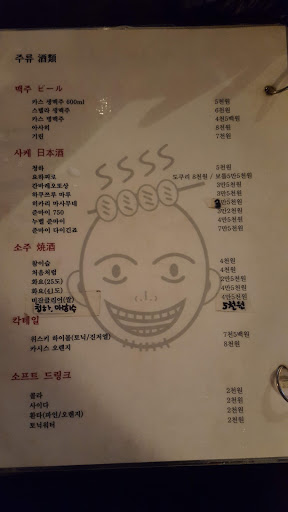 주류 酒類
맥주 ビール
카스 생맥주 500ml 5천원
스텔라 생맥주 6천원
카스 병맥주 4천5백원
아사히 8천원
기린 7천원
사케 日本酒
정하 5천원
요하찌로 도쿠리 8천원 / 보틀5만5천원
간바레오또상 3만5천원
하루쯔루 마루 3만5천원
히카리 마사무네
준마이 750 3만2천원
뉴벨 준마이 4만5천원
준마이 다이긴죠 7만5천원
소주 焼酒
참이슬 4천원
처음처럼 4천원
화요(25도) 2만5천원
화요(41도) 4만5천원
빅콘클리어(쌀) 4만5천원
5천원
칵테일
위스키 하이볼(토닉/진저엘) 7천5백원
카시스 오렌지 8천원
소프트 드링크
콜라 2천원
사이다 2천원
환타(파인/오렌지) 2천원
토닉워터 2천원